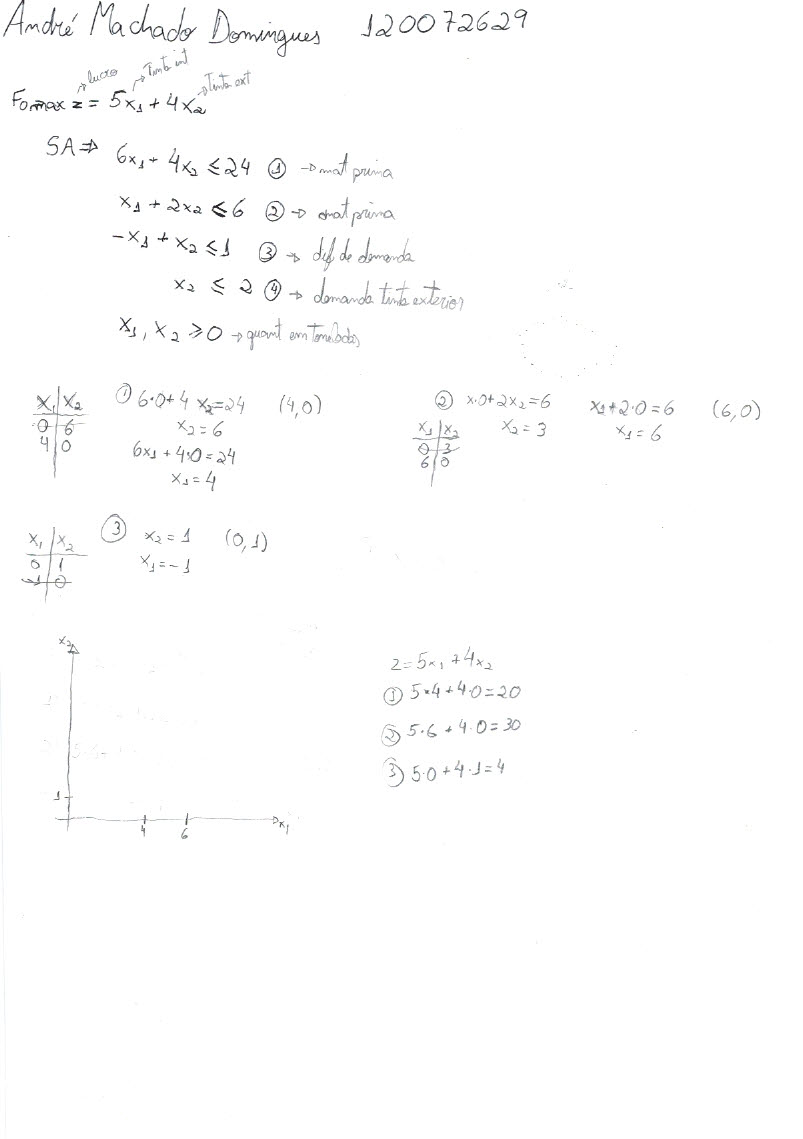 André Machado Domingues 120072629
→lucro →Tinta int →Tinta ext
Fomax z = 5x₁ + 4x₂
SA⇒ 6x₁ + 4x₂ ≤ 24 ① → mat prima
x₁ + 2x₂ ≤ 6 ② → mat prima
-x₁ + x₂ ≤ 1 ③ → dif de demanda
x₂ ≤ 2 ④ → demanda tinta exterior
x₁, x₂ ≥ 0 → quant em Toneladas
x₁ | x₂
0 | 6
4 | 0
① 6·0 + 4 x₂ = 24 (4,0)
x₂ = 6
6x₁ + 4·0 = 24
x₁ = 4
② x·0 + 2x₂ = 6 x₁ + 2·0 = 6 (6,0)
x₂ = 3 x₁ = 6
x₁ | x₂
0 | 3
6 | 0
x₁ | x₂
0 | 1
-1 | 0
③ x₂ = 1 (0,1)
x₁ = -1
x₂
1
4 6 x₁
z = 5x₁ + 4x₂
① 5·4 + 4·0 = 20
② 5·6 + 4·0 = 30
③ 5·0 + 4·1 = 4